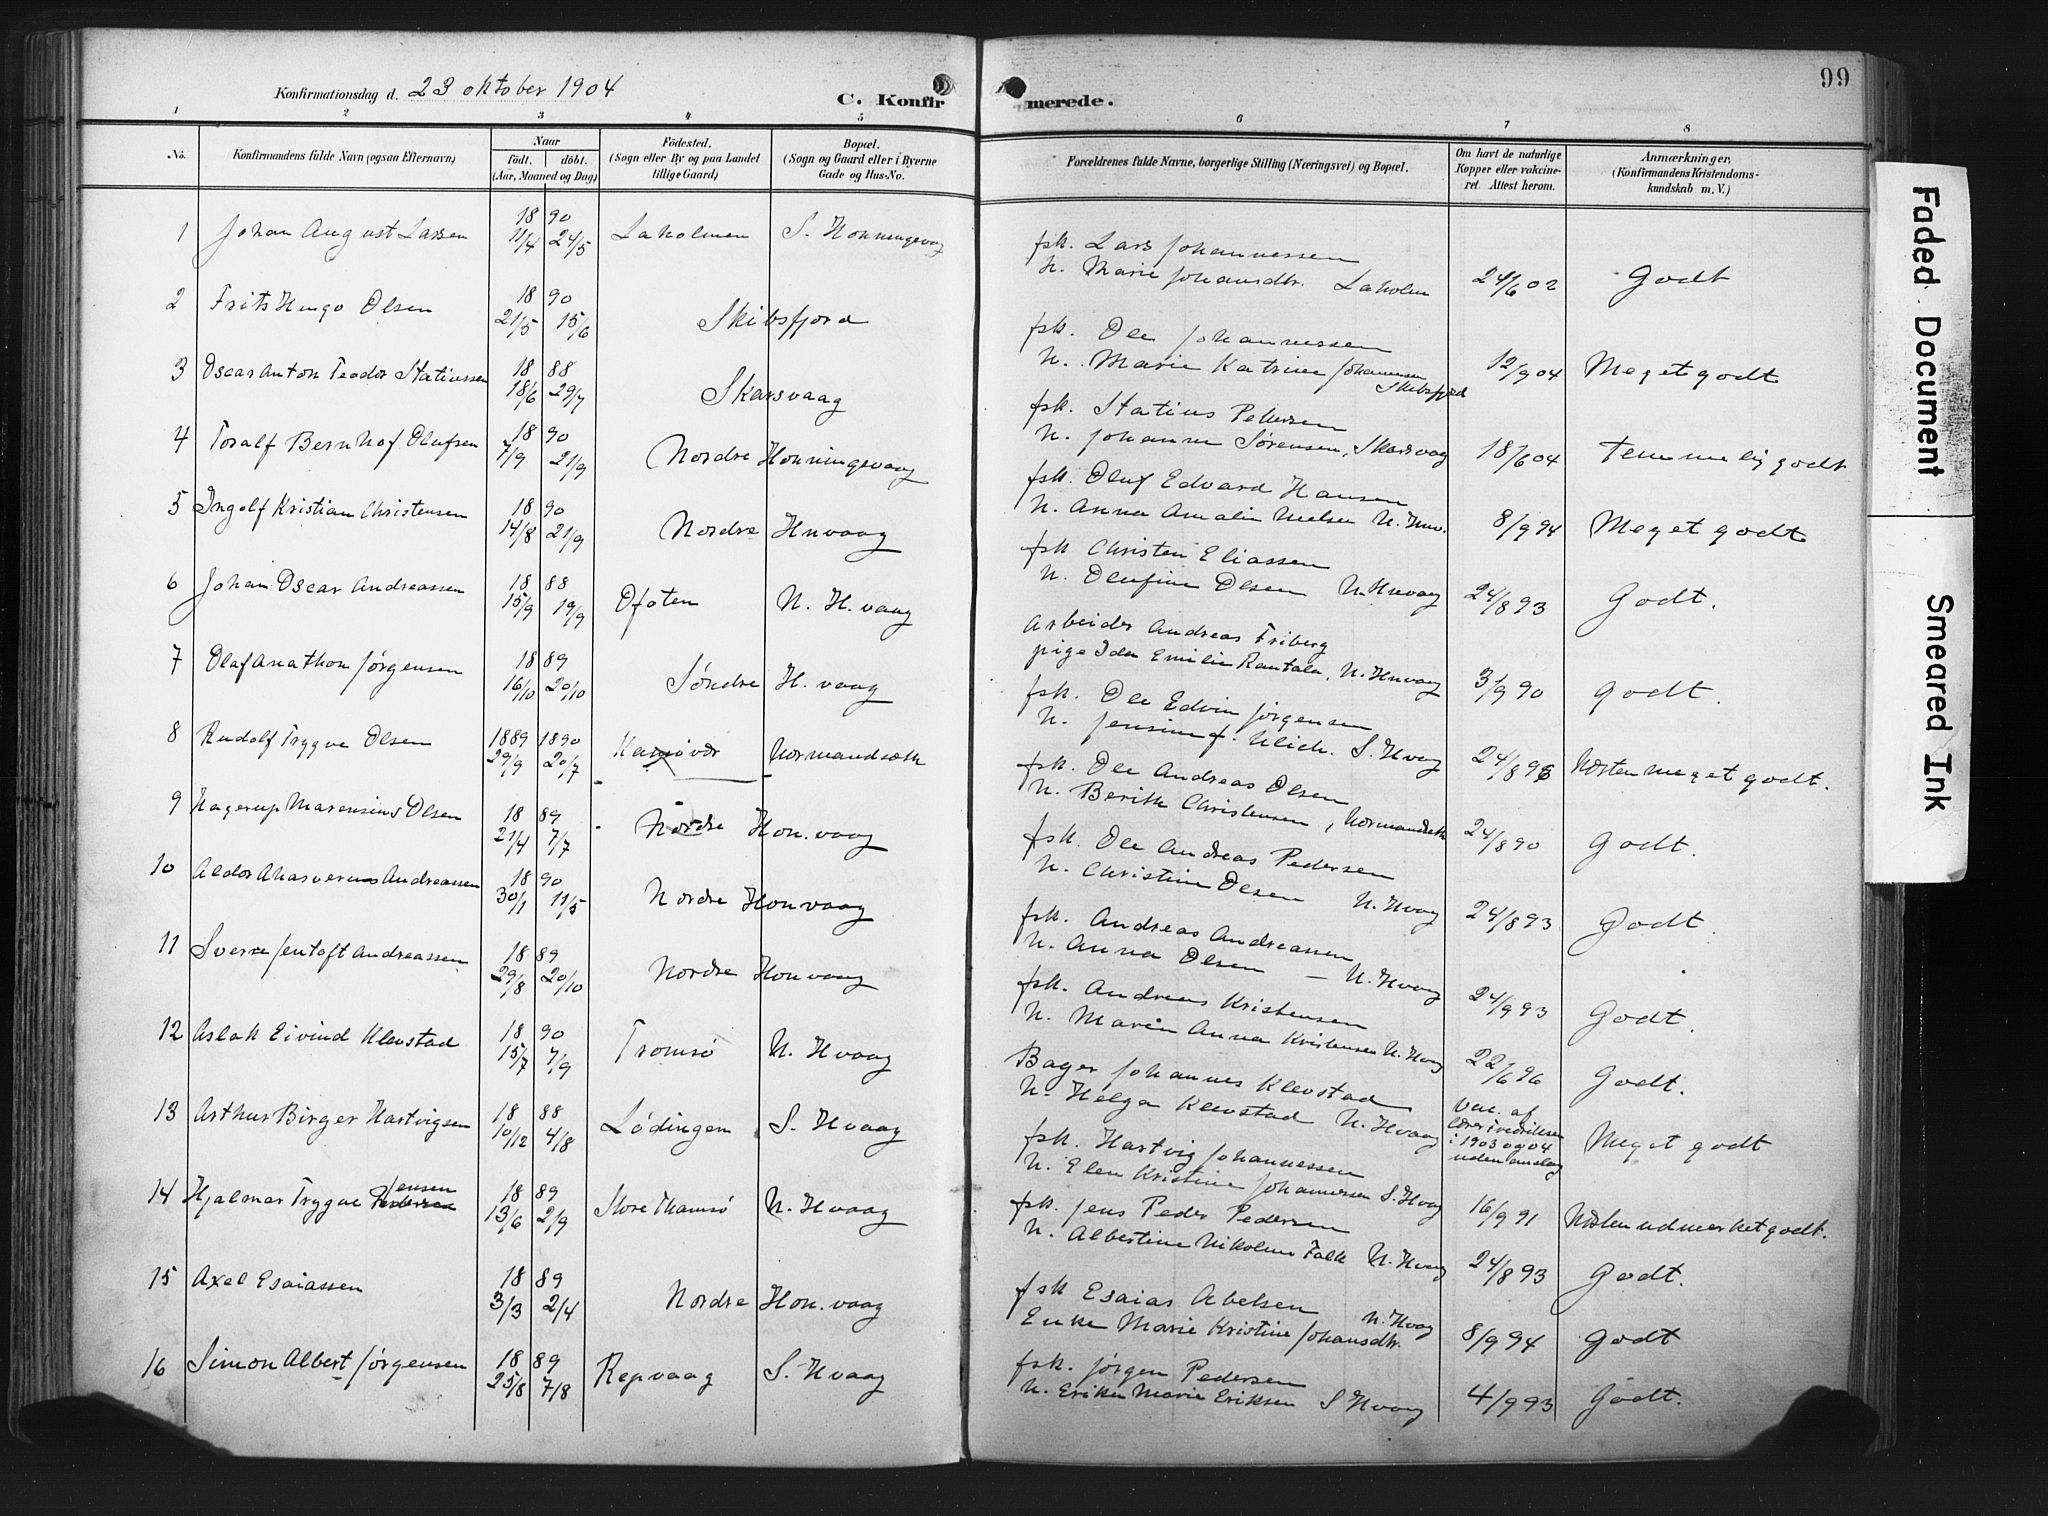 Konfirmationsdag d. 23 oktober 1904
C. Konfirmerede.
99
1 2 3 4 5 6 7 8
No.
Konfirmandens fulde Navn (ogsaa Efternavn)
Naar
födt. döbt.
(Aar, Maaned og Dag)
Födested.
(Sogn eller By og paa Landet
tillige Gaard)
Bopæl.
(Sogn og Gaard eller i Byerne
Gade og Hus-No.
Forældrenes fulde Navne, borgerlige Stilling (Næringsvei) og Bopæl.
Om havt de naturlige
Kopper eller vakcine-
ret. Attest herom.
Anmærkninger,
(Konfirmandens Kristendoms-
kundskab m. V.)
1 Johan August Larsen 1890 11/4 24/5 Laholmen S. Honningsvaag
fsk. Lars Johannessen
H. Marie Johansdtr. Laholm 24/6 02 Godt
2 Frits Hugo Olsen 1890 21/5 15/6 Skibsfjord
fsk. Ole Johannessen
H. Marie Katrine Johannessen Skibsfjord 12/9 04 Meget godt
3 Oscar Anton Teodor Statiussen 1888 18/6 29/7 Skarsvaag
fsk. Statius Pettersen
H. Johanne Sørensen, Skarsvaag 18/6 04 Temmelig godt
4 Toralf Bernhof Olufsen 1890 7/9 21/9 Nordre Honningsvaag
fsk. Oluf Edvard Hansen
H. Anna Amalie Nielsen N. Hnv. 8/9 94 Meget godt
5 Ingolf Kristian Christensen 1890 14/8 21/9 Nordre Hnvaag
fsk Christen Eliassen
H. Olufine Olsen N. Hnvaag 24/8 93 Godt.
6 Johan Oscar Andreassen 1888 15/9 19/9 Ofoten N. H. vaag
Arbeider Andreas Friberg
pige Ida Emilie Rantala, N. Hnvaag 3/9 90 Godt.
7 Olaf Anathon Jørgensen 1889 16/10 20/10 Søndre H. vaag
fsk. Ole Edvin Jørgensen
H. Jensine f. Ulich. S. Hvaag 24/8 96 Næsten meget godt.
8 Rudolf Trygve Olsen 1889 1890 29/9 20/7 Kamøvær Normandsæth
fsk. Ole Andreas Olsen
H. Berith Christensen, Normandseth 24/8 90 Godt.
9 Hagerup Marensius Olsen 1889 21/4 7/7 Nordre Hon. vaag
fsk. Ole Andreas Pedersen
H. Christine Olsen N. Hvaag 24/8 93 Godt.
10 Aldor Ahasverus Andreassen 1890 30/1 11/5 Nordre Honvaag
fsk. Andreas Andreassen
H. Anna Olsen — N. Hvaag 24/9 93 Godt.
11 Sverre Jentoft Andreassen 1889 29/8 20/10 Nordre Honvaag
fsk. Andreas Kristensen
H. Maren Anna Kristensen N. Hvaag 22/6 96 Godt.
12 Aslak Eivind Klevstad 1890 15/7 7/9 Tromsø N. Hvaag
Bager Johannes Klevstad
H. Helga Klevstad N. Hvaag
Vac. af
lærer Fredriksen
i 1903 og 04
uden anslag
Meget godt
13 Arthur Birger Hartvigsen 1888 10/12 4/8 Lødingen S. Hvaag
fsk. Hartvig Johannessen
H. Elen Kristine Johannessen S. Hvaag 16/9 91 Næsten udmerket godt.
14 Hjalmar Trygve Jensen 1889 13/6 2/9 Store Thamsø N. Hvaag
fsk. Jens Peder Pedersen
H. Albertine Nikoline Falk N. Hvaag 24/8 93 Godt.
15 Axel Esaiassen 1889 3/3 2/4 Nordre Hon. vaag
fsk Esaias Abelsen
Enke Marie Kristine Johansdtr. N. Hvaag 8/9 94 Godt
16 Simon Albert Jørgensen 1889 25/8 7/8 Repvaag S. Hvaag
fsk. Jørgen Pedersen
H. Eriken Marie Eriksen S Hvaag 4/9 93 Godt.
Faded Document
Smeared Ink